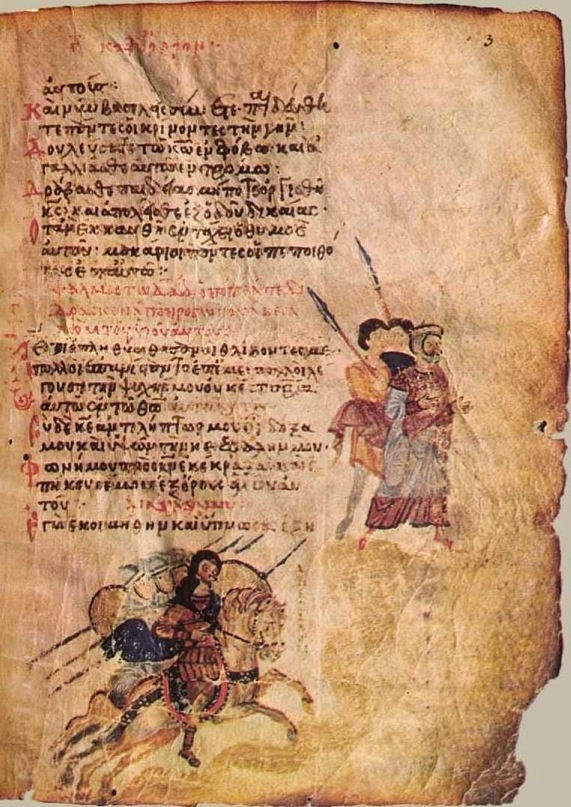 3
αὐτούς·
Καὶ νῦν βασιλεῖς σύνετε· παιδεύθη
τε πάντες οἱ κρίνοντες τὴν γῆν·
Δουλεύσατε τῷ κῶ ἐν φόβω· καὶ ἀ
γαλλιᾶσθε αὐτῶ ἐν τρόμω·
Δράξασθε παιδείας μήποτε ὀργισθῆ
κς· καὶ ἀπολεῖσθε ἐξ ὁδοῦ δικαίας·
Ὅταν ἐκκαυθῆ ἐν τάχει ὁ θυμὸς
αὐτοῦ· μακάριοι πάντες οἱ πεποιθό
τες ἐπ αὐτῶ:
ψαλμὸς τῶ δαδ ὁπότε ἀπεδί
δρασκεν ἀπὸ προσώπου
τοῦ υἱοῦ αὐτοῦ
τί ἐπληθύνθησαν οἱ θλίβοντές με·
πολλοὶ ἐπανίστανται ἐπ ἐμέ· πολλοὶ λέ
γουσι τῆ ψυχῆ μου οὐκ ἔστι
αὐτῶ ἐν τῶ θω
Σὺ δὲ κε ἀντιλήπτωρ μου εἶ· δόξα
μου καὶ ὑψῶν τὴν κεφαλήν μου·
Φωνῆ μου πρὸς κν ἐκέκραξα καὶ ἐ
πήκουσέ μου ἐξ ὄρους ἁγίου αὐ
τοῦ· διάψαλμα
Ἐγὼ ἐκοιμήθην καὶ ὕπνωσα ἐξη